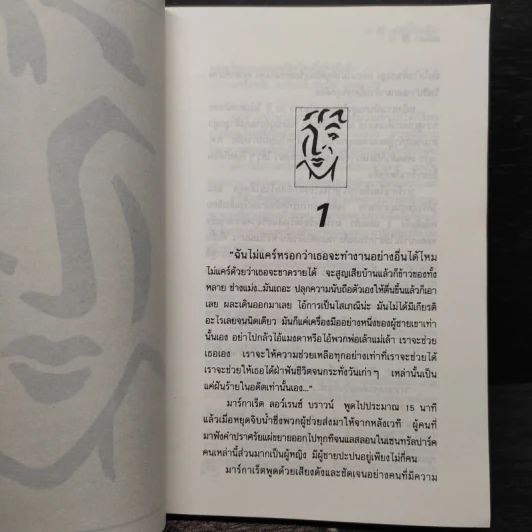 1
"ฉันไม่แคร์หรอกว่าเธอจะทำงานอย่างอื่นได้ไหม
ไม่แคร์ด้วยว่าเธอจะขาดรายได้ จะสูญเสียบ้านแล้วก็ข้าวของทั้ง
หลาย ช่างแม่ง...มันเถอะ ปลุกความนับถือตัวเองให้ตื่นขึ้นแล้วก็เอา
เลย ผละเดินออกมาเลย ไอ้การเป็นโสเภณีน่ะ มันไม่ได้มีเกียรติ
อะไรเลยจนนิดเดียว มันก็แค่เครื่องมืออย่างหนึ่งของผู้ชายเขาเท่า
นั้นเอง อย่าไปกลัวไอ้แมงดาหรือไอ้พวกพ่อเล้าแม่เล้า เราจะช่วย
เธอเอง เราจะให้ความช่วยเหลือทุกอย่างเท่าที่เราจะช่วยได้
เราจะช่วยให้เธอได้ฝ่าฟันชีวิตจนกระทั่งวันเก่าๆ เหล่านั้นเป็น
แค่ฝันร้ายในอดีตเท่านั้นเอง..."
มาร์กาเร็ต ลอว์เรนซ์ บราวน์ พูดไปประมาณ 15 นาที
แล้วเมื่อหยุดจิบน้ำซึ่งพวกผู้ช่วยส่งมาให้จากหลังเวที ผู้คนที่
มาฟังคำปราศรัยแผ่ขยายออกไปทุกทีจนแลสลอนในเซนทรัลปาร์ค
คนเหล่านี้ส่วนมากเป็นผู้หญิง มีผู้ชายปะปนอยู่เพียงไม่กี่คน
มาร์กาเร็ตพูดด้วยเสียงดังและชัดเจนอย่างคนที่มีความ